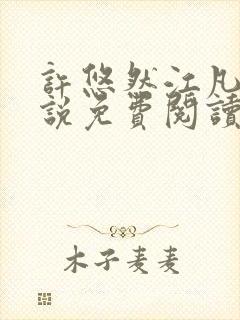 許悠然江凡
說免費閱讀
木子麦麦